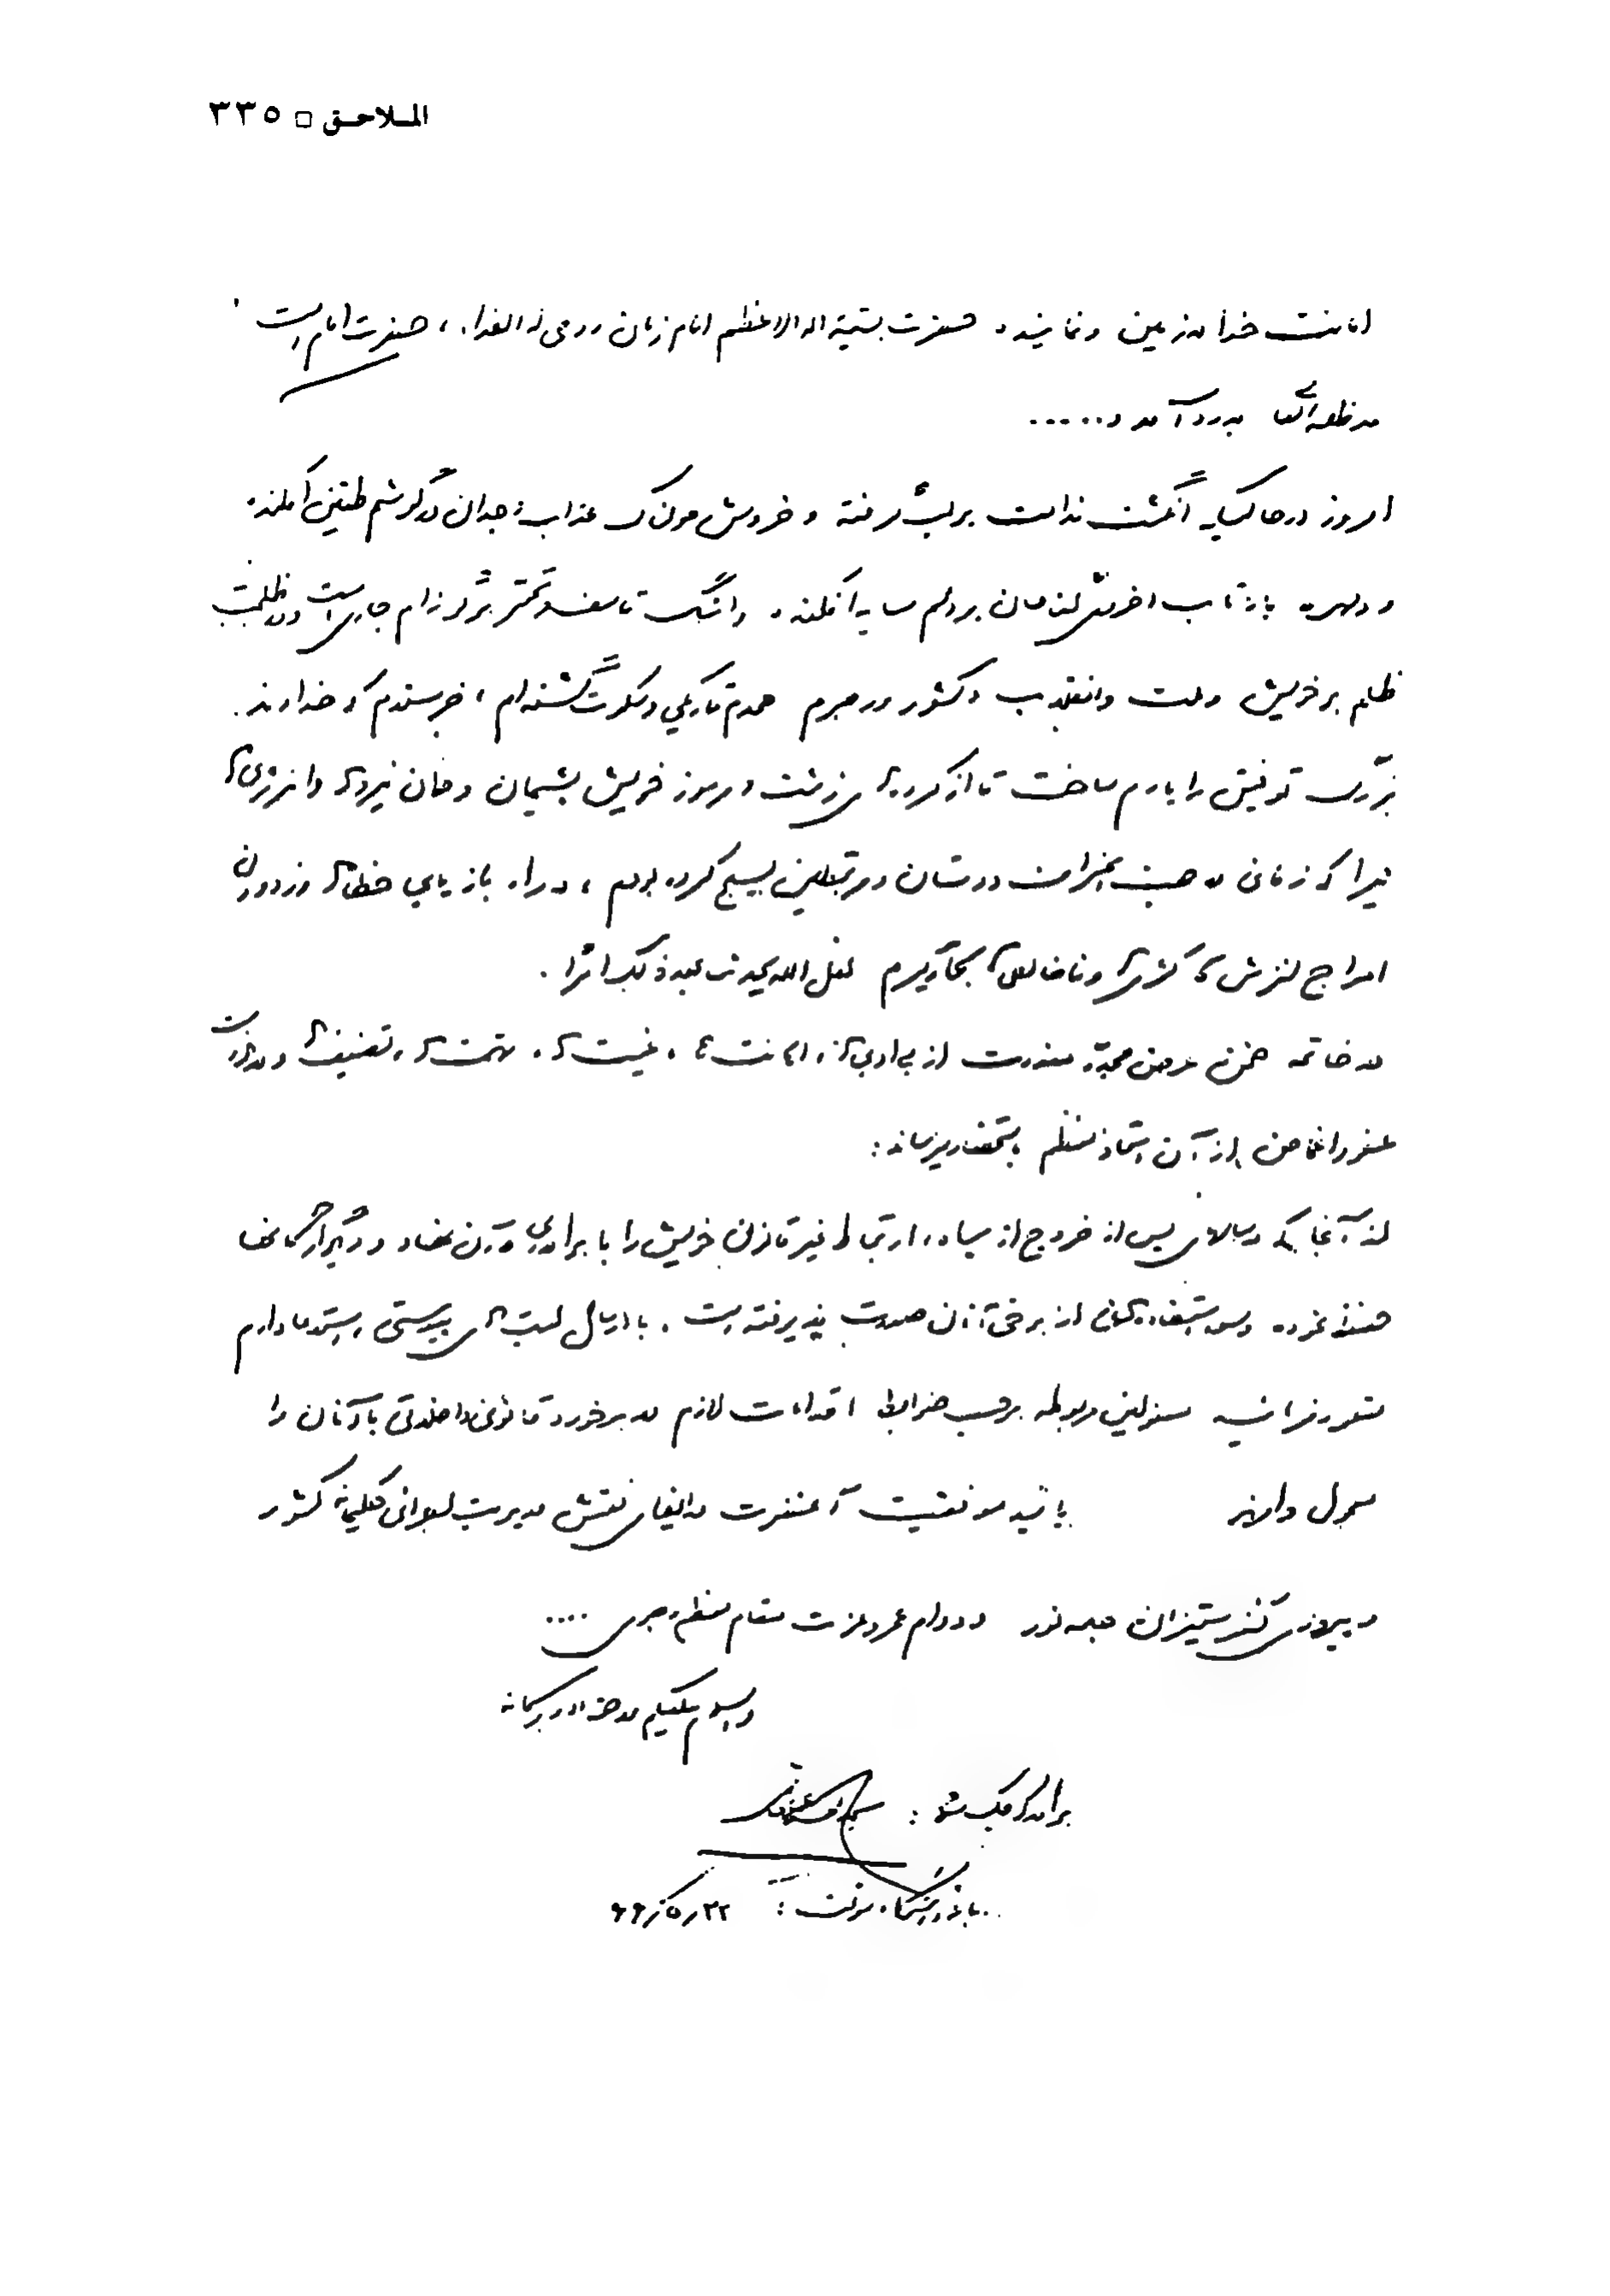 الملاحق □ ٣٣٥
امانت خدا در زمین و نماینده حضرت بقیة الله الاعظم امام زمان روحی له الفداء، حضرت امام است
مدظله العالی بدرد آمد و......
امروز در حالیکه انگشت ندامت بر لب گرفته و خروش هولناک عذاب وجدان در گوشم طنین افکنده
و دلهره بازتاب اخروی گناهان بر دلم سایه افکنده و اشک تاسف و تحسر بر گونه‌ام جاری است و در ظلمت
ظلم بر خویش و ملت و انقلاب و کشور و رهبرم همدم تاریکی و سکوت گشته‌ام، خرسندم که خداوند
بزرگ توفیق را یارم ساخت تا از کرده‌های زشت و مرموز خویش پشیمان و همان نیروها و انرژی‌های
را که زمانی در جهت انحراف دوستان و مرتبطین بسیج کرده بودم، در راه بازیابی خطاها و زدودن
امواج لغزش‌ها بکار گیرم لعل الله یحدث بعد ذلک امرا.
در خاتمه ضمن عرض مجدد معذرت از بی ادبی‌ها، اهانت‌ها، غیبت‌ها، تهمت‌ها، تضعیف‌ها و درخواست
عفو و اغماض از آن استاد معظم باستحضار میرساند:
از آنجا که در سالهای پس از خروج از سپاه، ارتباط غیرقانونی خویش را با برادرانی در آن نهاد و دیگر ارگانها
حفظ نموده و سوء استفاده‌هایی از برخی آنان صورت پذیرفته است. با ارسال لیست‌های پیوستی، استدعا دارم
دستور فرمائید مسئولین مربوطه برحسب ضوابط اقدامات لازم در برخورد قانونی و اخلاقی با آنان را
معمول دارند با امید موفقیت آنحضرت در ایفای نقش مدیریت کشور
و پیروزی کفرستیزان جبهه نور و دوام عمر و عزت مقام معظم رهبری ....
والسلام علیکم و رحمة الله و برکاته
برادر کوچک شما:
بازداشتگاه موقت: ۶۶/۵/۲۲